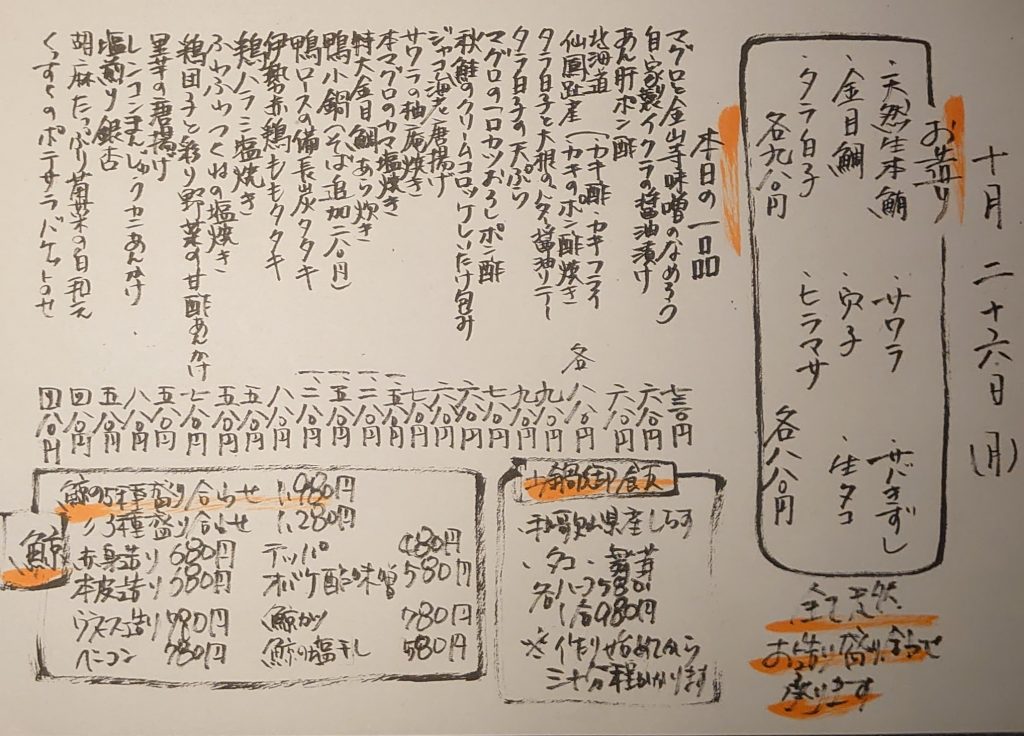 十月二十六日(月)
お造り
・天然生本鮪
・金目鯛
・タラ白子
各九八〇円
・サワラ
・穴子
・ヒラマサ
・サバきずし
・生タコ
各八八〇円
全て天然
お造り盛り合わせ
承ります
本日の一品
マグロと金山寺味噌のなめろう
自家製イクラの醤油漬け 六八〇円
あん肝ポン酢 六八〇円
北海道 仙鳳趾産(カキ酢・カキフライ・カキのポン酢焼き 各八八〇円
タラ白子と大根の 醤油ソテー 九八〇円
タラ白子の天ぷら 九八〇円
マグロの一口カツおろしポン酢 七八〇円
秋鮭のクリームコロッケしいたけ包み 六八〇円
ジャコ海老唐揚げ 六八〇円
サワラの柚庵焼き 七八〇円
本マグロのカマ塩焼き
特大金目鯛あら炊き
鴨小鍋(そば追加二八〇円)
鴨ロースの備長炭タタキ
伊勢赤鶏ももタタキ 八八〇円
鶏ハラミ塩焼き 五八〇円
ふわふわつくねの塩焼き 五八〇円
鶏団子と彩り野菜の甘酢あんかけ 七八〇円
里芋の唐揚げ 五八〇円
レンコンまんじゅうカニあんかけ 八八〇円
塩煎り銀杏 五八〇円
胡麻たっぷり菊菜の白和え 四八〇円
くんすくのポテサラバケットのせ 四八〇円
小鍋御飯
和歌山県産しらす
・タコ ・舞茸
各ハーフ580円
1合980円
※作り始めてから
三十分程かかります
鯨
鯨の5種盛り合わせ 1,980円
〃3種盛り合わせ 1,280円
赤身造り 680円
本皮造り 580円
ベーコン 780円
テッパ 480円
オバケ酢味噌 580円
鯨カツ 780円
鯨の塩干し 580円